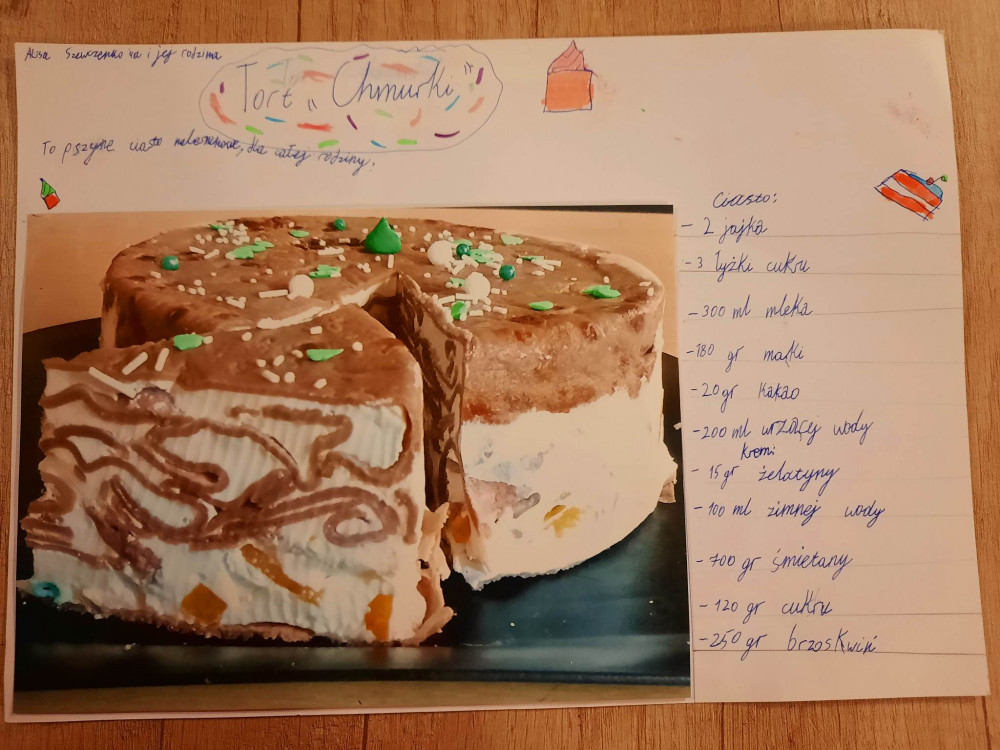 Alisa Szewczenko 4a i jej rodzina
Tort „Chmurki"
To pszyne ciasto naleśnikowe, dla całej rodziny.
Ciasto:
- 2 jajka
- 3 łyżki cukru
- 300 ml mleka
- 180 gr mąki
- 20 gr kakao
- 200 ml wrzącej wody
Krem:
- 15 gr żelatyny
- 100 ml zimnej wody
- 700 gr śmietany
- 120 gr cukru
- 250 gr brzoskwiń